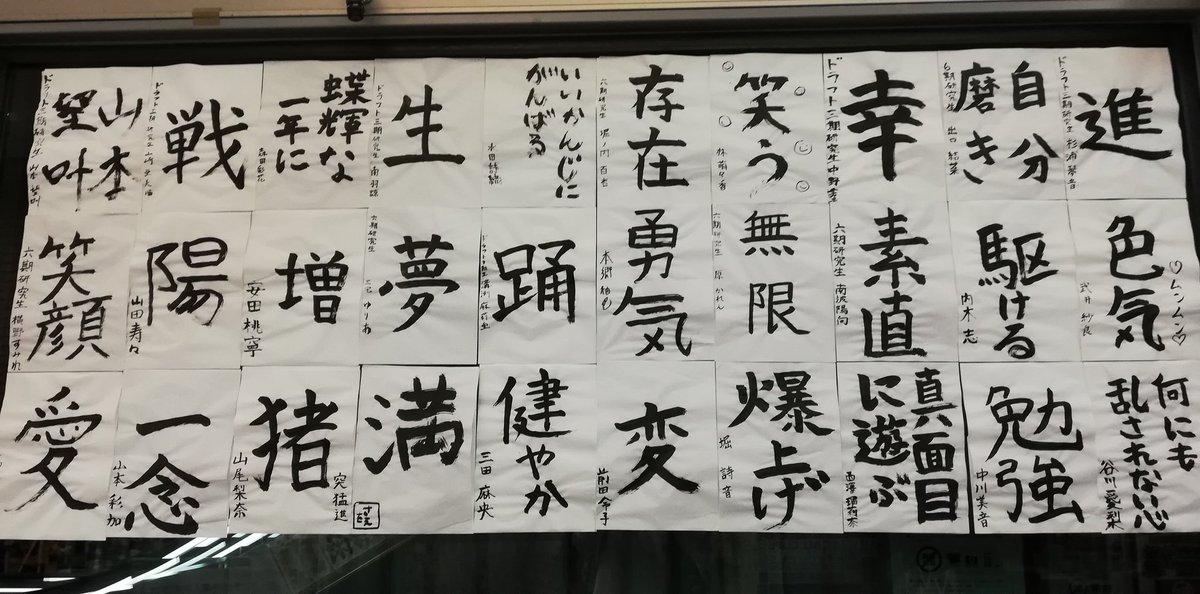 進
ドラフト三期研究生 杉浦琴音
自分
磨き
六期研究生 出口 結菜
幸
ドラフト三期研究生中野
笑う
林萌々香
存在
六期研究生 堀ノ内 百香
いいかんじに
がんばる
水田詩織
生
ドラフト三期研究生南羽諒
蝶輝な
一年に
森田彩花
戦
ドラフト三期研究生山崎
山本
望叶
ドラフト三期研究生 山本望叶
♡ムンムン♡
色気
武井 紗良
駆ける
内木 志
素直
六期研究生 南波陽向
無限
六期研究生 原 かれん
勇気
本郷柚巴
踊
夢
六期研究生 三宅 ゆりあ
増
安田桃寧
陽
山田寿々
笑顔
六期研究生 横野すみれ
何にも
乱されない心
谷川愛梨
勉強
中川美音
真面目
に遊ぶ
西澤瑠莉奈
爆上げ
堀 詩音
変
前田令子
健やか
三田 麻央
満
突猛進
猪
山尾梨奈
一念
山本 彩加
愛